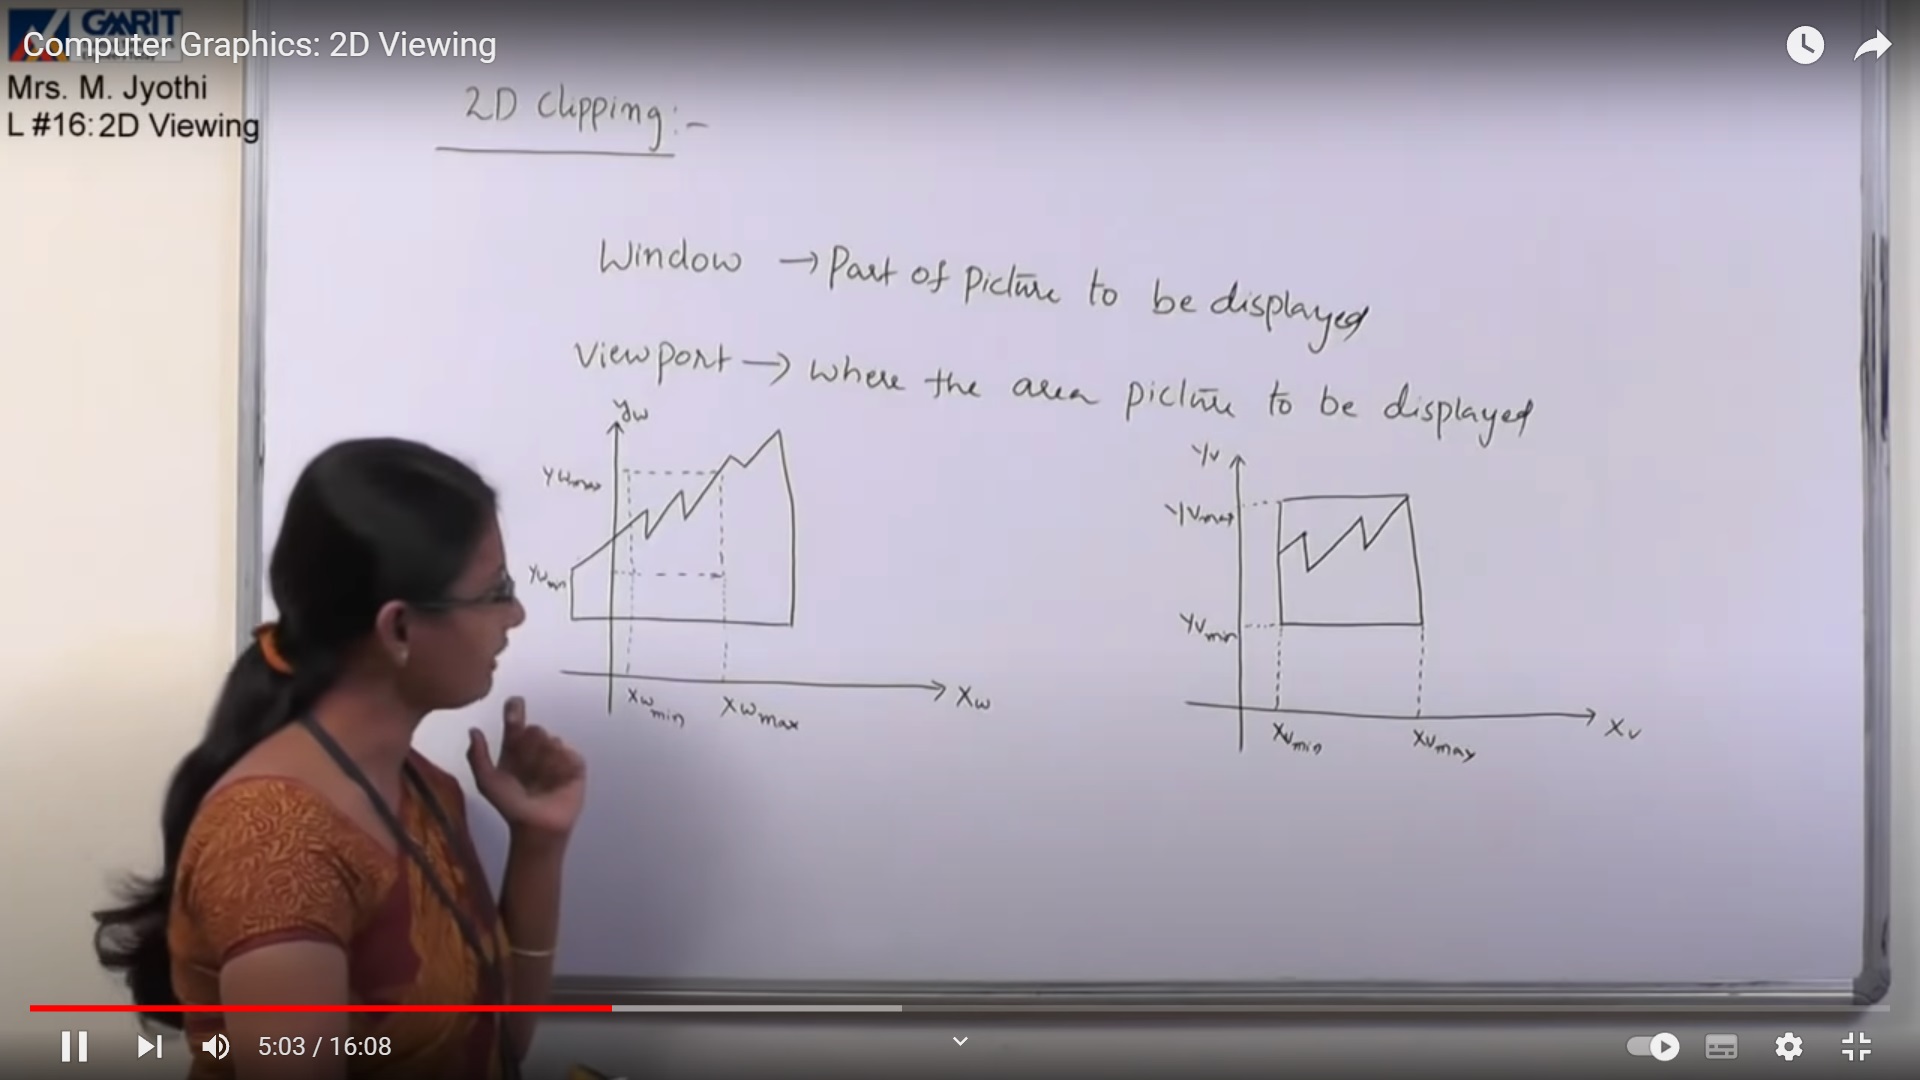 GMRIT
Computer Graphics: 2D Viewing
Mrs. M. Jyothi
L #16: 2D Viewing
2D Clipping:-
Window → Part of Picture to be displayed
Viewport → where the area picture to be displayed
yw
Ywmax
Ywmin
Xwmin
Xwmax
Xw
Yv
Yvmax
Yvmin
Xvmin
Xvmax
Xv
5:03 / 16:08